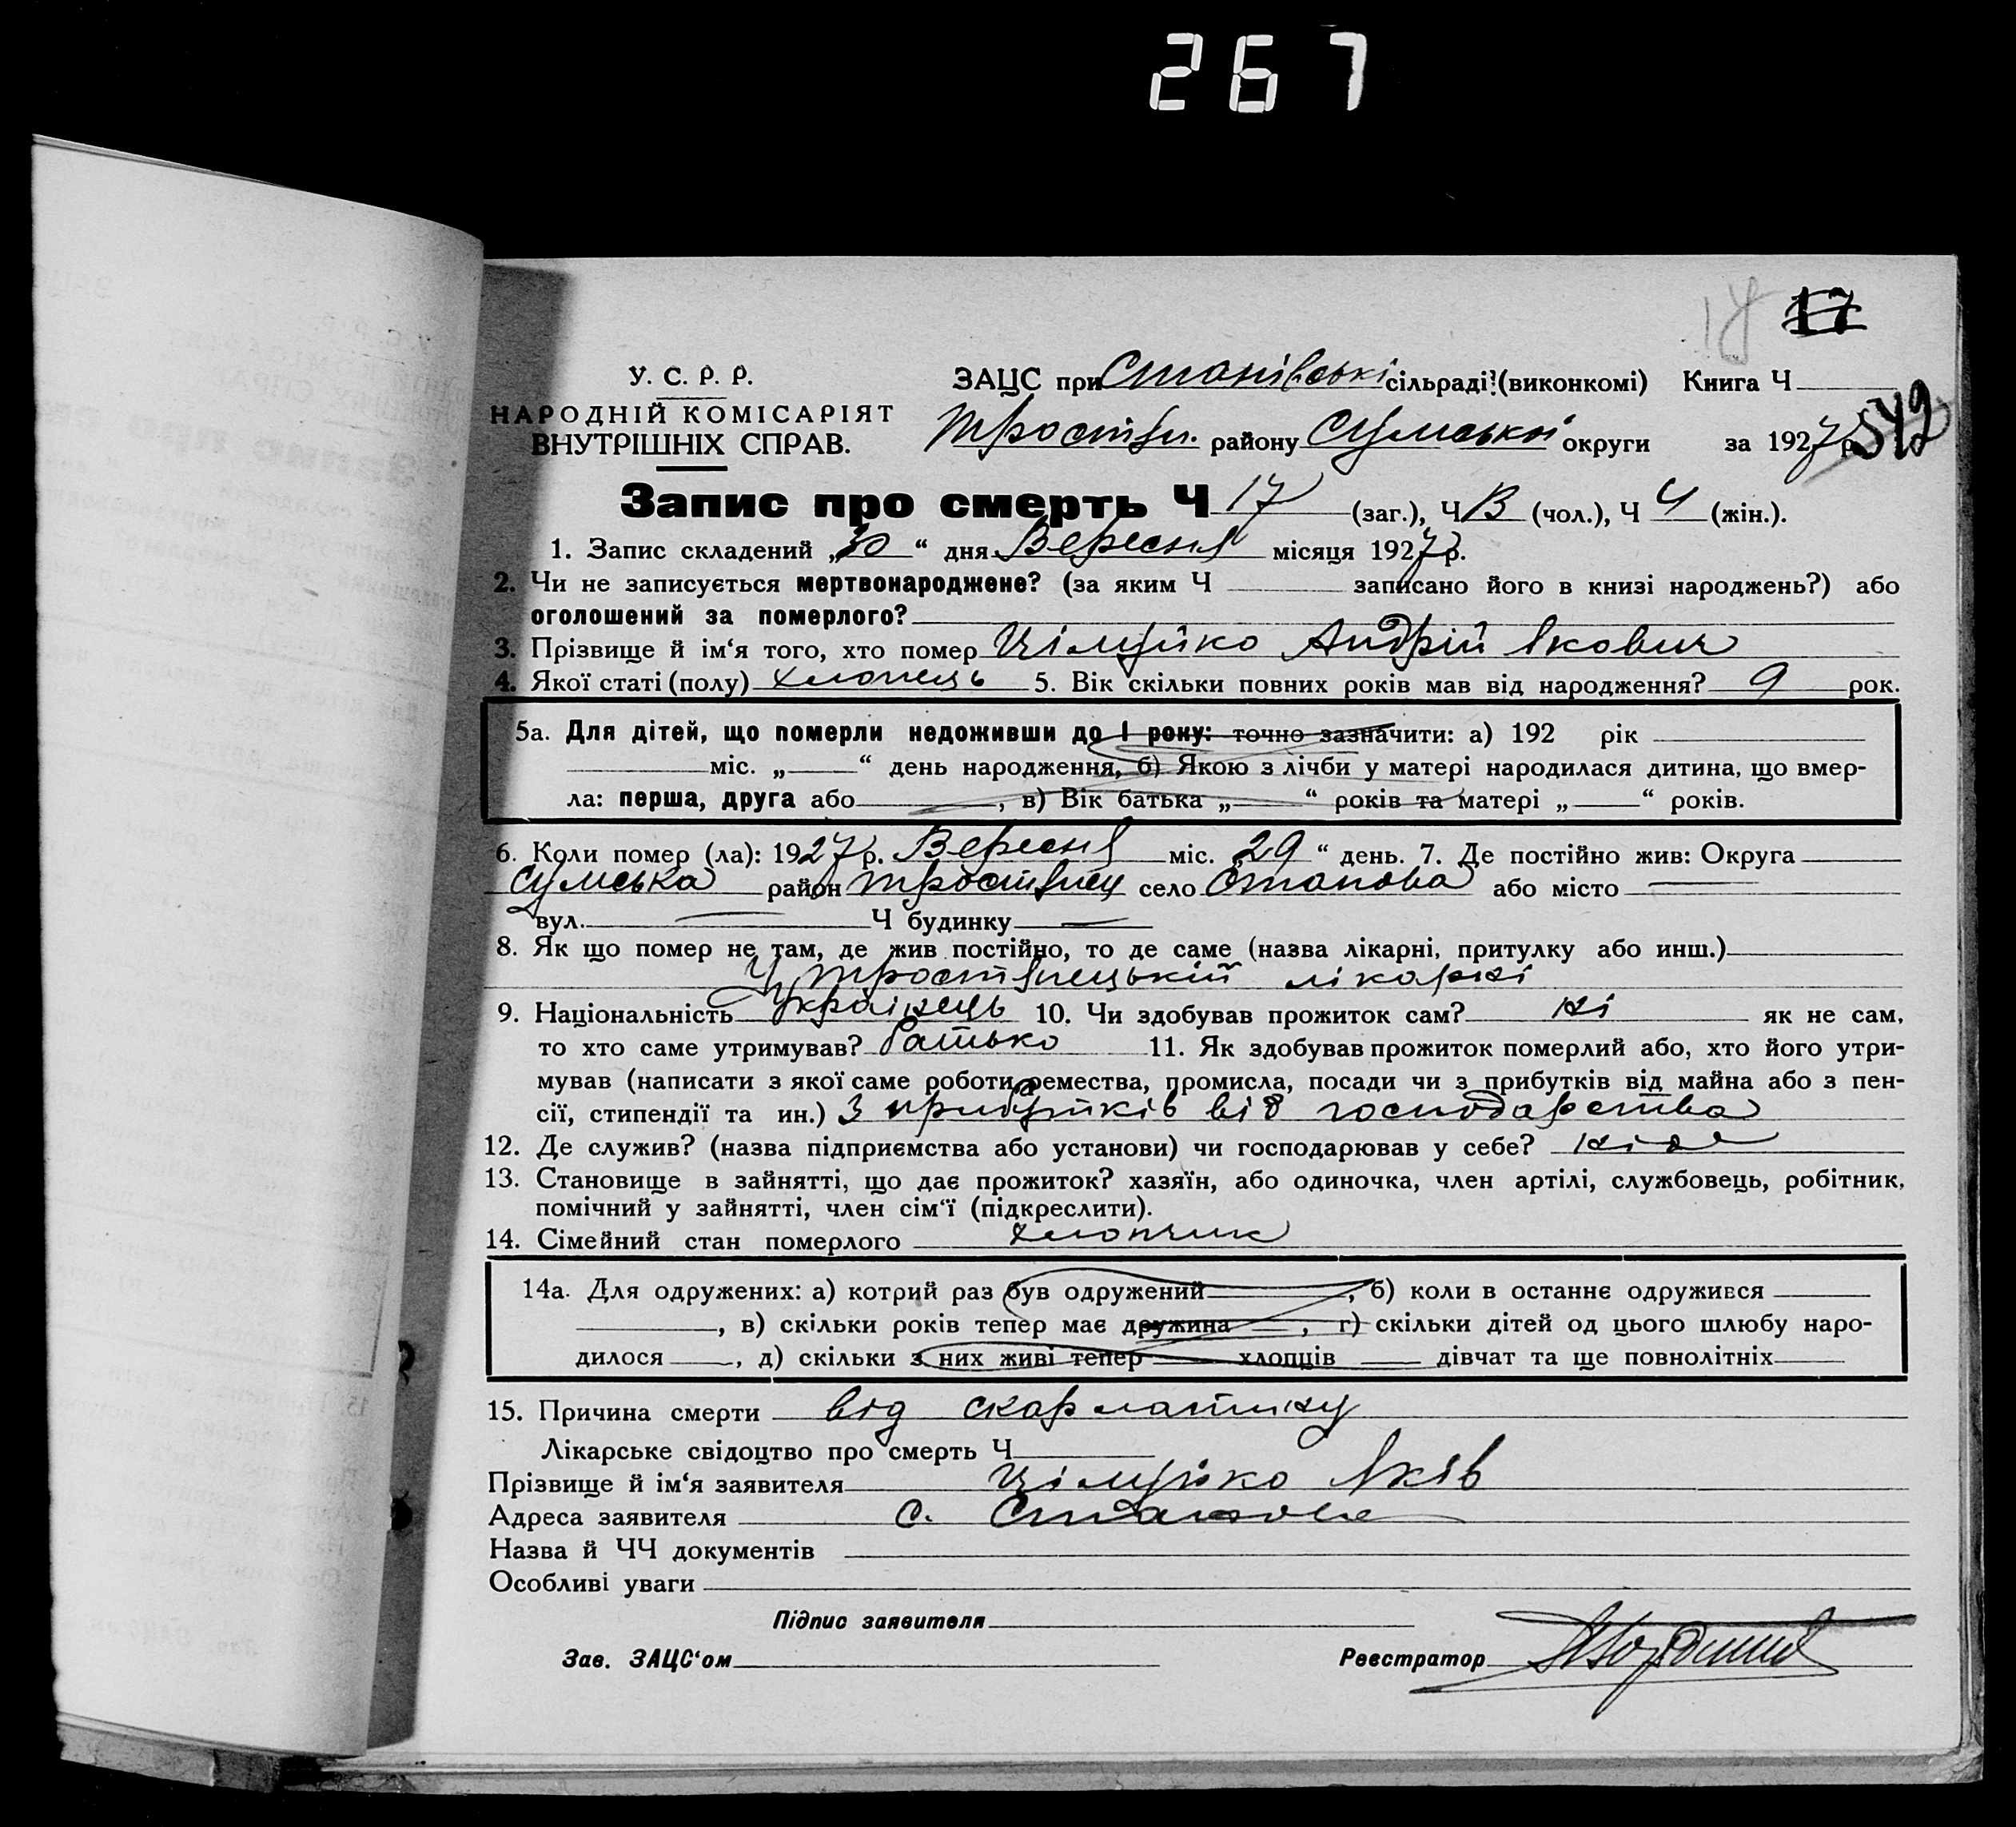 267
17 17
У. С. Р. Р.
НАРОДНІЙ КОМІСАРІЯТ
ВНУТРІШНІХ СПРАВ.
ЗАЦС при Становській сільраді (виконкомі) Книга Ч
Тростян. району Сумської округи за 1927 р. 542
Запис про смерть Ч 17 (заг.), Ч 13 (чол.), Ч 4 (жін.).
1. Запис складений „30“ дня Вересня місяця 1927 р.
2. Чи не записується мертвонароджене? (за яким Ч записано його в книзі народжень?) або
оголошений за померлого?
3. Прізвище й ім‘я того, хто помер Андрій Якович
4. Якої статі (полу) хлопець 5. Вік скільки повних років мав від народження? 9 рок.
5а. Для дітей, що померли недоживши до 1 року: точно зазначити: а) 192 рік
міс. „ “ день народження, б) Якою з лічби у матері народилася дитина, що вмер-
ла: перша, друга або , в) Вік батька „ “ років та матері „ “ років.
6. Коли помер (ла): 1927 р. Вересня міс. „29“ день. 7. Де постійно жив: Округа
Сумська район Тростянец село Станова або місто
вул. Ч будинку
8. Як що помер не там, де жив постійно, то де саме (назва лікарні, притулку або инш.)
У Тростянецькій лікарні
9. Національність Українець 10. Чи здобував прожиток сам? ні як не сам,
то хто саме утримував? батько 11. Як здобував прожиток померлий або, хто його утри-
мував (написати з якої саме роботи, ремества, промисла, посади чи з прибутків від майна або з пен-
сії, стипендії та ин.) З прибутків від господарства
12. Де служив? (назва підприємства або установи) чи господарював у себе?
13. Становище в зайнятті, що дає прожиток? хазяїн, або одиночка, член артілі, службовець, робітник,
помічний у зайнятті, член сім‘ї (підкреслити).
14. Сімейний стан померлого хлопчик
14а. Для одружених: а) котрий раз був одружений , б) коли в останнє одружився
, в) скільки років тепер має дружина , г) скільки дітей од цього шлюбу наро-
дилося , д) скільки з них живі тепер хлопців дівчат та ще повнолітніх
15. Причина смерти від скарлатини
Лікарське свідоцтво про смерть Ч
Прізвище й ім‘я заявителя Яків
Адреса заявителя с. Станова
Назва й ЧЧ документів
Особливі уваги
Підпис заявителя
Зав. ЗАЦС‘ом Реєстратор